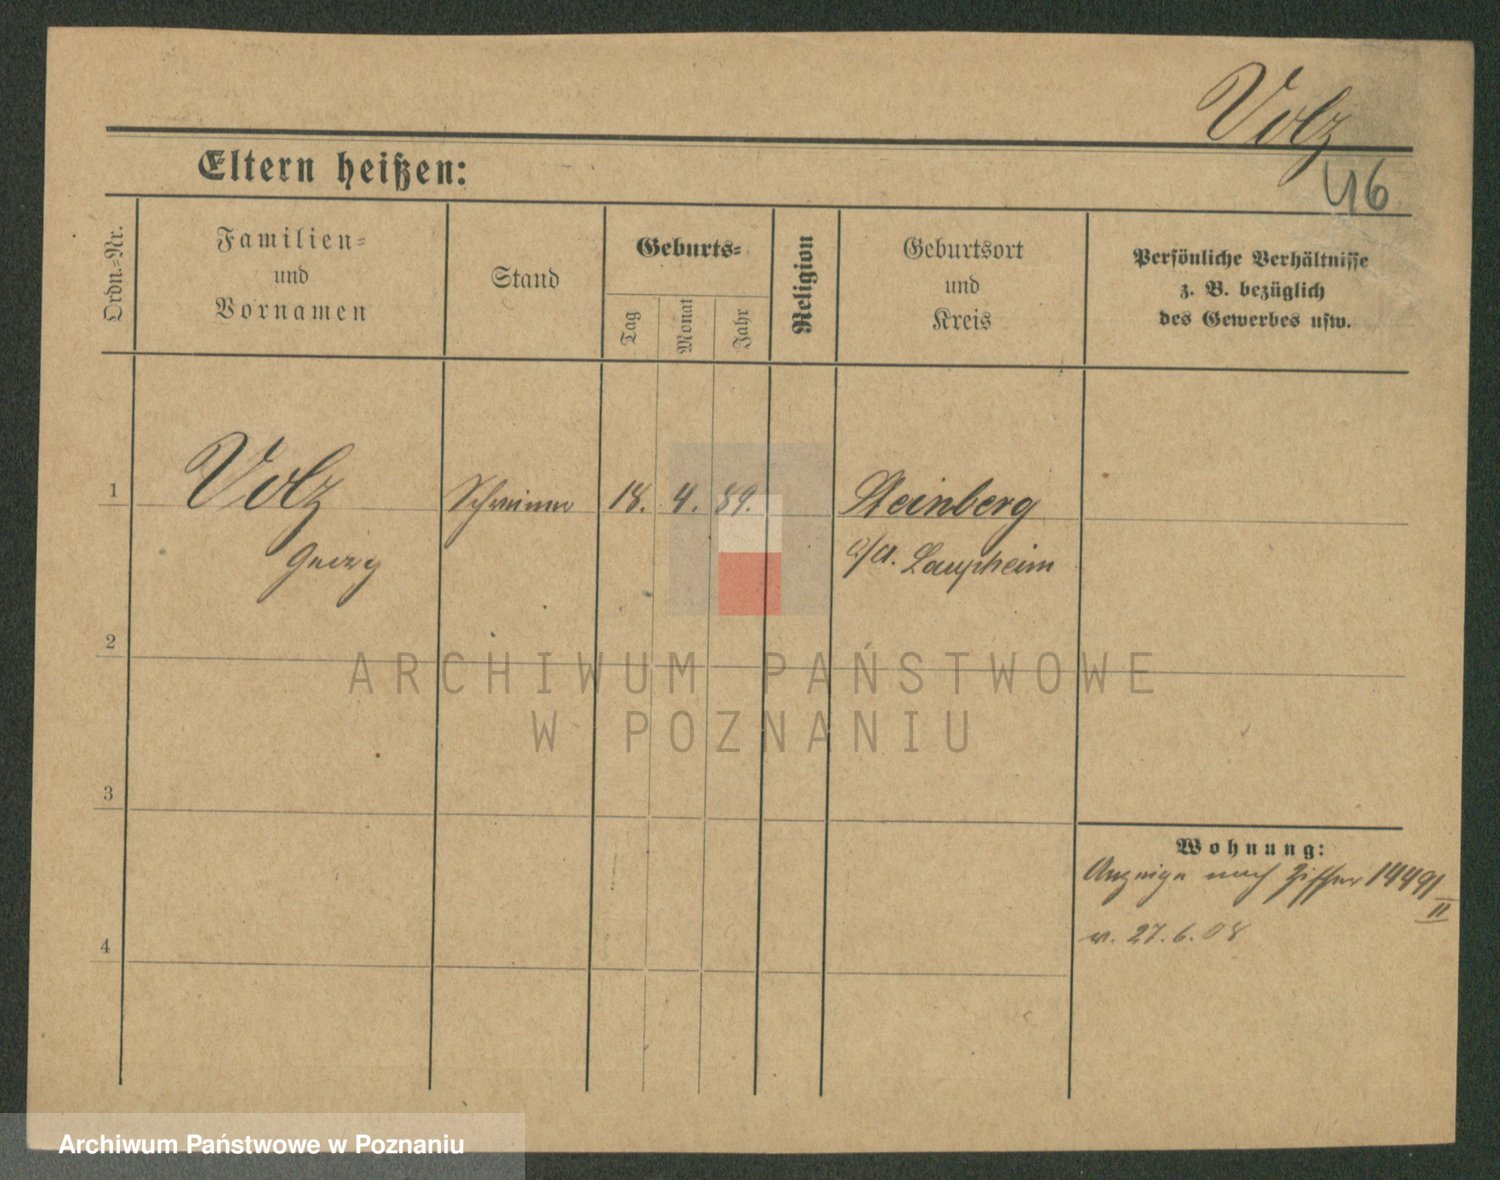 Volz
46
Eltern heißen:
Ordn.-Nr.
Familien-
und
Vornamen
Stand
Geburts-
Tag
Monat
Jahr
Religion
Geburtsort
und
Kreis
Persönliche Verhältnisse
z. B. bezüglich
des Gewerbes usw.
1
Volz
Georg
Schreiner
18. 4. 89.
Steinberg
O/A. Laupheim
2
ARCHIWUM PAŃSTWOWE
W POZNANIU
3
Wohnung:
Anzeige nach Ziffer 14491
II
v. 27.6.08
4
Archiwum Państwowe w Poznaniu